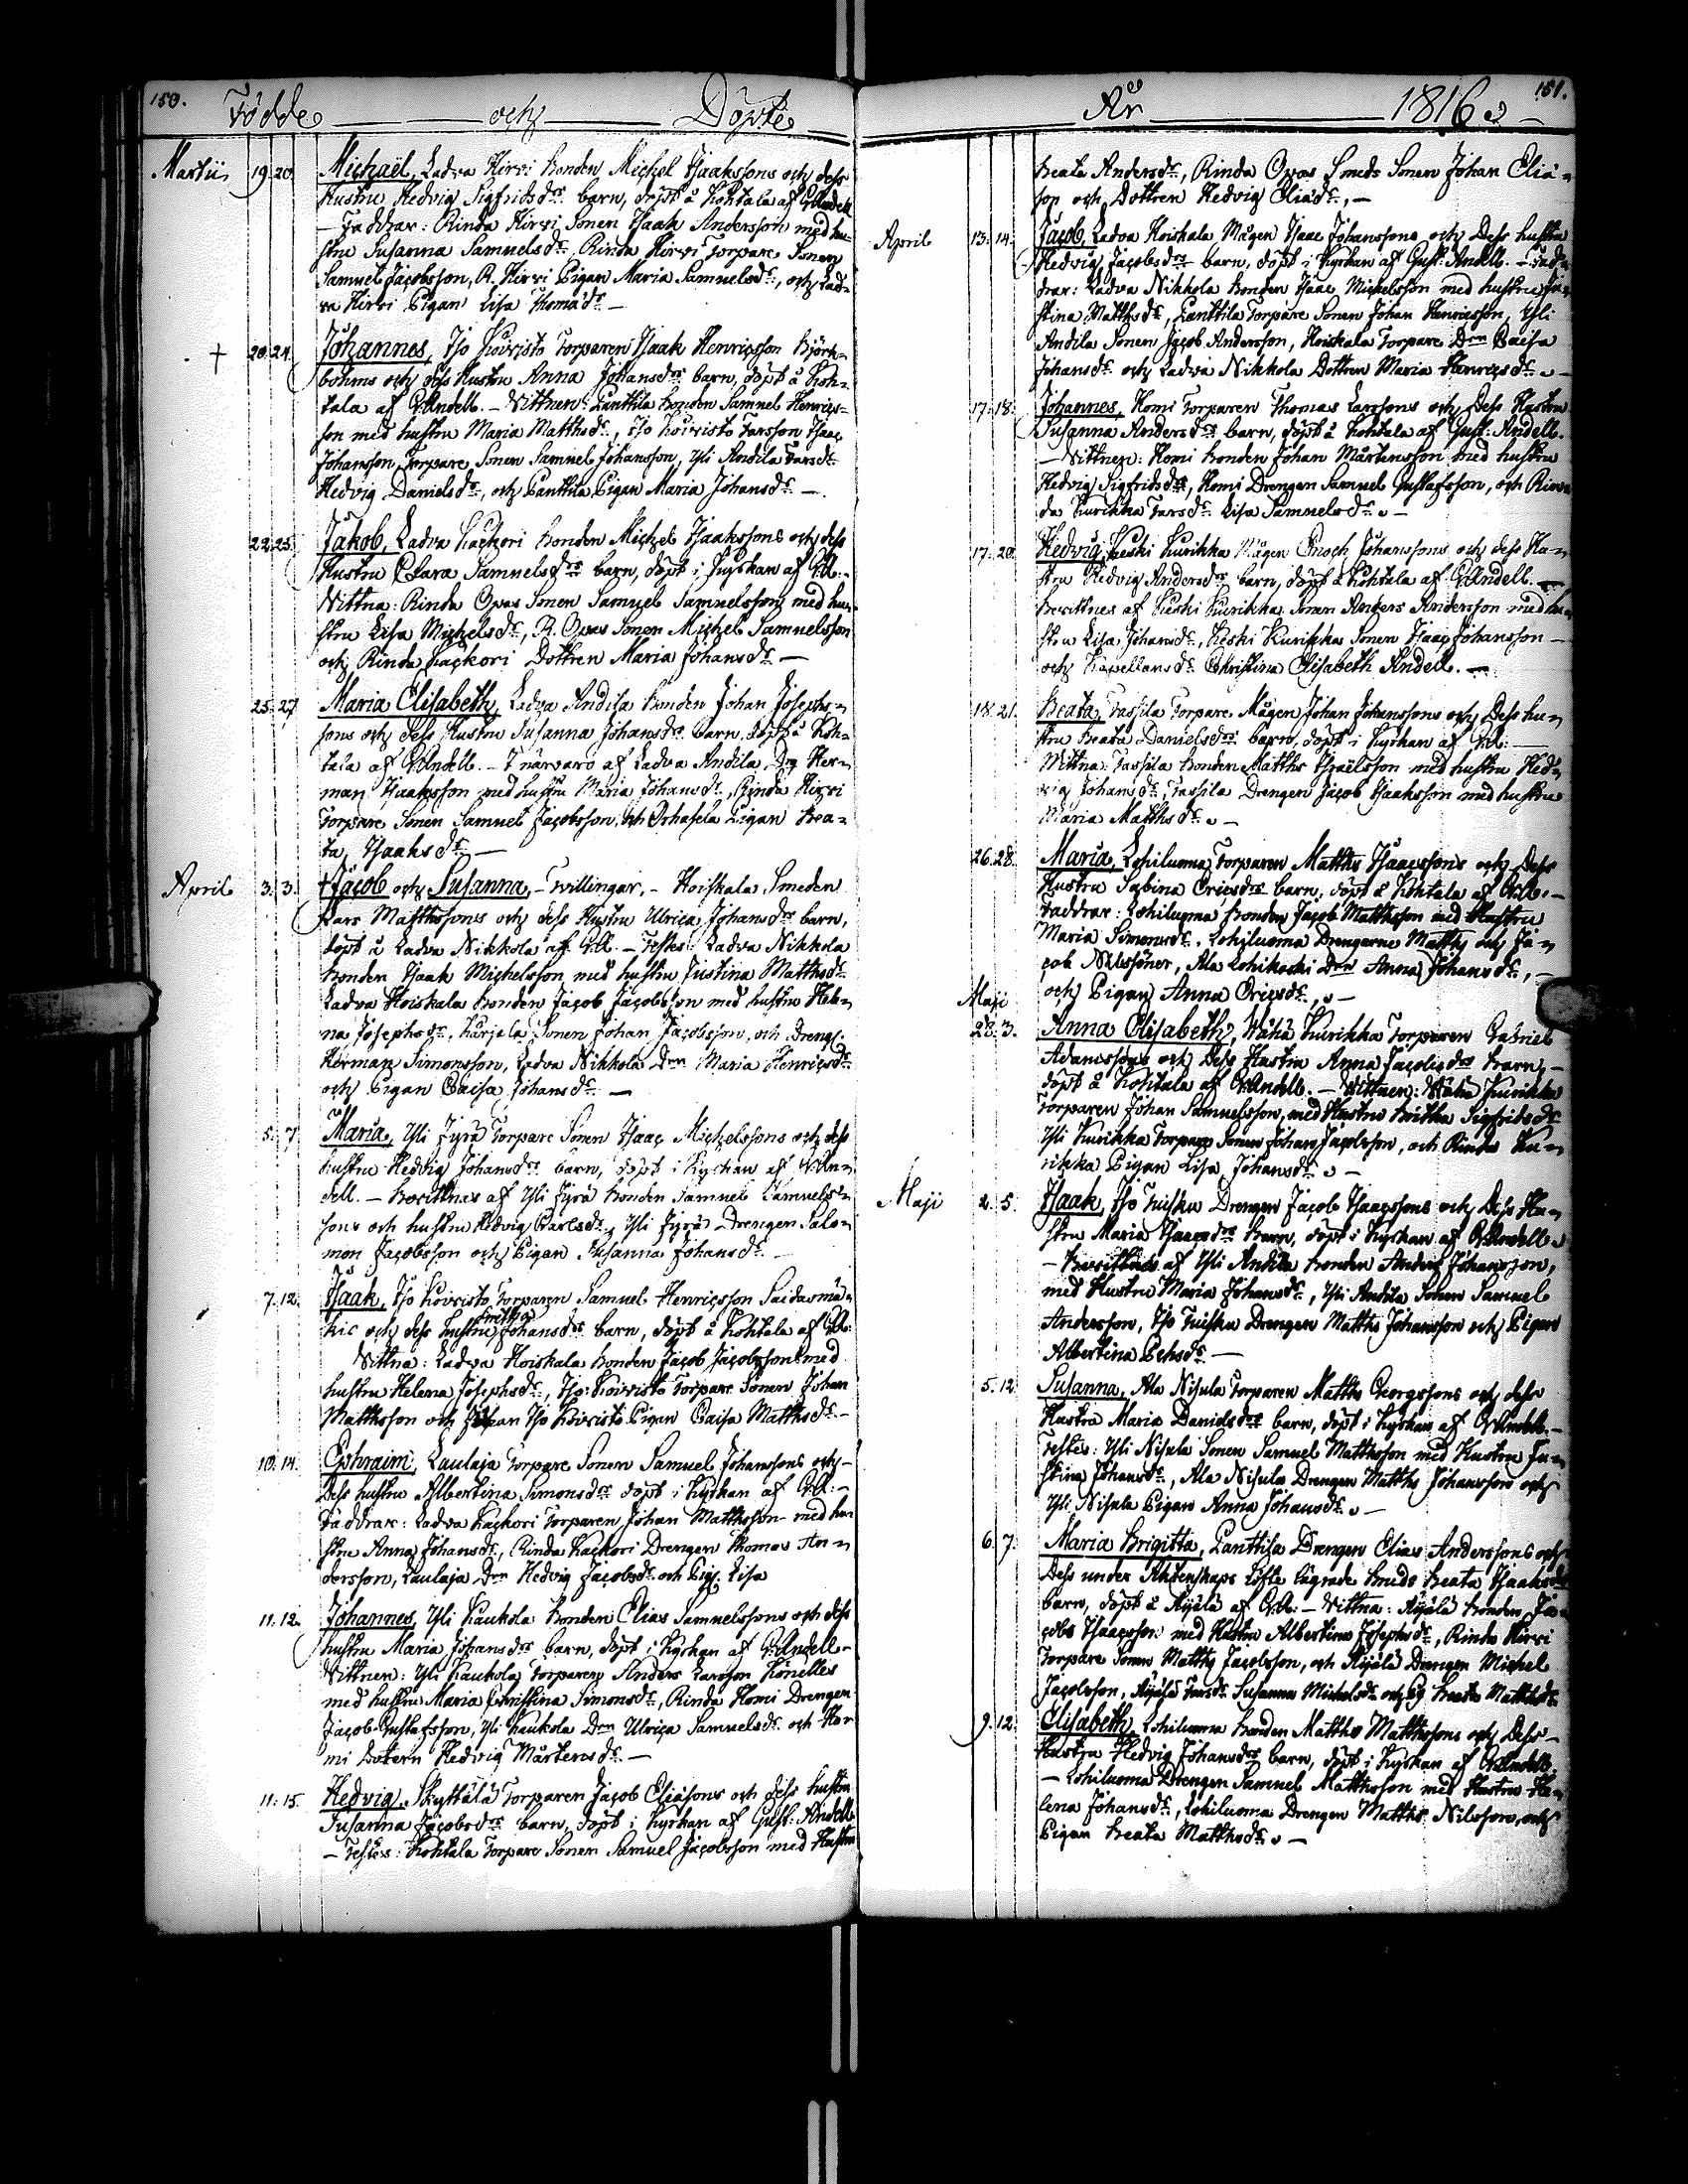 150.
Födde och Döpte
Martii 19. 20. Michaël, Ladva Hirvi bonden Michel Isaakssons och dess
hustru Hedvig Sigfridsdrs barn, döpt å Kohtala af GAndell
– Faddrar: Rinda Hirvi Sonen Isaak Andersson med hu-
stru Susanna Samuelsdr, Rinda Hirvi Torpare Sonen
Samuel Jacobsson, R. Hirvi Pigan Maria Samuelsdr, och Lad-
va Hirvi Pigan Lisa Thomädr –
† 20. 24. Johannes, Iso Koivisto Torparen Isaak Henricsson Björk-
bohms och dess Hustru Anna Johansdrs barn, döpt å Koh-
tala af GAndell. – Vittnen: Panttila bonden Samuel Henrics-
son med hustru Maria Matthsdr, Iso Koivisto Farsson Isaac
Johansson, Torpare Sonen Samuel Johansson, Yli Andila Farsdr
Hedvig Danielsdr, och Panttila Pigan Maria Johansdr –
22. 25. Jakob, Ladva Kackori bonden Michel Isaakssons och dess
Hustru Clara Samuelsdrs barn, döpt i Kyrkan af GA. –
Vittna: Rinda Opas Sonen Samuel Samuelsson med hu-
stru Lisa Michelsdr, R. Opas Sonen Michel Samuelsson
och Rinda Kackori Dottren Maria Johansdr –
25. 27. Maria Elisabeth, Ladva Andila bonden Johan Josephs-
sons och dess Hustru Susanna Johansdrs barn, döpt å Koh-
tala af GAndell. – I närvaro af Ladva Andila Drg Her-
man Isaaksson med hustru Maria Johansdr, Rinda Hirvi
Torpare Sonen Samuel Jacobsson, och Orhasela Pigan Bea-
ta Isaaksdr –
April 3. 3. † Jacob och Susanna, – Tvillingar, – Hoiskala Smeden
Lars Matthssons och dess Hustru Ulrica Johansdrs barn,
döpt å Ladva Nikkola af GA. – Testes: Ladva Nikkola
bonden Isaak Michelsson med hustru Justina Matthsdr
Ladva Hoiskala bonden Jacob Jacobsson med hustru Hele-
na Josephsdr, Karjela Sonen Johan Jacobsson, och Dreng.
Herman Simonsson, Ladva Nikkola Drn Maria Henricsdr
och Pigan Caisa Johansdr –
5. 7. Maria, Yli Jyrä Torpare Sonen Isaac Michelssons och dess
hustru Hedvig Johansdrs barn, döpt i Kyrkan af GAn-
dell. – Bevittnas af Yli Jyrä bonden Samuel Samuels-
sons och hustru Hedvig Carlsdr, Yli Jyrä Drengen Salo-
mon Jacobsson och Pigan Susanna Johansdr –
7. 12. Isaak, Iso Koivisto Torparen Samuel Henricsson Saidasmä-
kis och dess hustru Britha Johansdrs barn, döpt å Kohtala af GA.
Vittna: Ladva Hoiskala bonden Jacob Jacobsson med
hustru Helena Josephsdr, Iso Koivisto Torpare Sonen Johan
Matthsson och Iso Koivisto Pigan Caisa Matthsdr –
10. 14. Ephraim, Laulaja Torpare Sonen Samuel Johanssons och –
Dess hustru Albertina Simonsdrs döpt i Kyrkan af GA: –
Faddrar: Ladva Kackori Torparen Johan Matthsson med hu-
stru Anna Johansdr, Rinda Kackori Drengen Thomas An-
dersson, Laulaja Drn Hedvig Jacobsdr och Pig. Lisa
11. 12. Johannes, Yli Kaukola bonden Elias Samuelssons och dess
hustru Maria Johansdrs barn, döpt i Kyrkan af GAndell –
Vittnen: Yli Kaukola Torparen Anders Larsson Könelles
med hustru Maria Christina Simonsdr, Rinda Homi Drengen
Jacob Gustafsson, Yli Kaukola Drn Ulrica Samuelsdr och Ho-
mi Dotern Hedvig Mårtensdr –
11. 15. Hedvig, Skyttälä Torparen Jacob Eliäsons och dess hustru
Susanna Jacobsdrs barn, döpt i Kyrkan af Gust: Andell
– Testes: Kohtala Torpare Sonen Samuel Jacobsson med Hustru
År 1816.
151.
Beata Andersdr, Rinda Opas Smeds Sonen Johan Eliä-
son och Dottren Hedvig Eliädr, –
April 13. 14. Jacob, Ladva Hoiskala Mågen Isaac Johanssons och Dess hustru
Hedvig Jacobsdrs barn, döpt i Kyrkan af Gust: Andell. – Fad-
drar: Ladva Nikkola bonden Isaac Michelsson med hustru Ju-
stina Matthsdr, Panttila Torpare Sonen Johan Henricsson, Yli
Andila Sonen Jacob Andersson, Hoiskala Torpare Drn Caisa
Johansdr och Ladva Nikkola Dottren Maria Henricsdr. –
17. 18. Johannes, Homi Torparen Thomas Larssons och Dess Hustru
Susanna Andersdrs barn, döpt å Kohtala af Gust: Andell.
– Vittnen: Homi bonden Johan Mårtensson med hustru
Hedvig Sigfridsdr, Homi Drengen Samuel Gustafsson, och Rin-
da Kurikka Farsdr Lisa Samuelsdr. –
17. 20. Hedvig, Keski Kurikka Mågen Enoch Johanssons och dess Hu-
stru Hedvig Andersdrs barn, döpt å Kohtala af GAndell. –
Bevittnes af Keski Kurikka Sonen Anders Andersson med hu-
stru Lisa Johansdr, Keski Kurikka Sonen Isaac Johansson –
och Kapellansdr Christina Elisabeth Andell. –
18. 21. Beata, Tassila Torpare Mågen Johan Johanssons och Dess hu-
stru Beata Danielsdrs barn, döpt i Kyrkan af GA: –
Vittna: Tassila bonden Matths Israelsson med hustru Hed-
vig Johansdr, Tassila Drengen Jacob Isaaksson med hustru
Maria Matthsdr. –
26. 28. Maria, Lohiluoma Torparen Matths Isaacssons och Dess
Hustru Sabina Ericsdrs barn, döpt å Kohtala af GA. –
Faddrar: Lohiluoma bonden Jacob Matthsson med Hustru
Maria Simonsdr, Lohiluoma Drengarne Matths och Ja-
cob Nilssöner, Ala Lohikoski Drn Anna Johansdr, –
och Pigan Anna Ericsdr, –
Maji
28. 3. Anna Elisabeth, Wähä Kurikka Torparen Gabriel
Adamssons och Dess Hustru Anna Jacobsdrs barn, –
döpt å Kohtala af GAndell. – Vittnen: Wähä Kurikka
Torparen Johan Samuelsson, med Hustru Britha Sigfridsdr
Yli Kurikka Torpare Sonen Johan Jacobsson, och Rinda Ku-
rikka Pigan Lisa Johansdr. –
Maji 2. 5. Isaak, Iso Tuisku Drengen Jacob Isaacssons och Dess Hu-
stru Maria Isaacsdrs barn, döpt i Kyrkan af GAndell.
– Bevittnas af Yli Andila bonden Anders Johansson,
med Hustru Maria Johansdr, Yli Andila Sonen Samuel
Andersson, Iso Tuisku Drengen Matths Johansson och Pigan
Albertina Pehrsdr –
5. 12. Susanna, Ala Nisula Torparen Matths Georgssons och dess
Hustru Maria Danielsdrs barn, döpt i Kyrkan af GAndell. –
Testes: Yli Nisula Sonen Samuel Matthsson med Hustru Ju-
stina Johansdr, Ala Nisula Drengen Matths Johansson och
Yli Nisula Pigan Anna Johansdr. –
6. 7. Maria Brigitta, Panttila Drengen Elias Anderssons och
Dess under Äktenskaps Löfte lägrade Brude Beata Isaaksdrs
barn, döpt å Äijälä af GA: – Vittna: Äijälä bonden Ja-
cobs Isaacsson med Hustru Albertina Josephsdr, Rinda Hirvi
Torpare Sonen Matths Jacobsson, och Äijälä Drengen Michel
Jacobsson, Äijälä Farsdr Susanna Michelsdr och Pg Beata Matthsdr
9. 12. Elisabeth, Lohiluoma bonden Matths Matthssons och Dess –
Hustru Hedvig Johansdrs barn, döpt i Kyrkan af GAndell.
– Lohiluoma Drengen Samuel Matthsson med Hustru He-
lena Johansdr, Lohiluoma Drengen Matths Nilsson, och
Pigan Beata Matthsdr. –